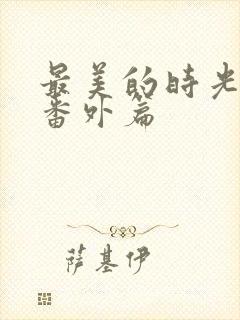 最美的时光
番外篇
萨基伊